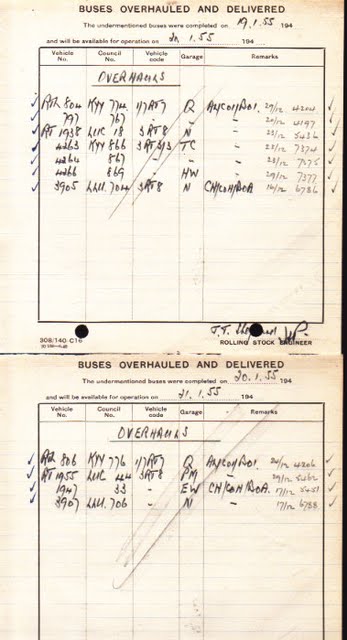 BUSES OVERHAULED AND DELIVERED
The undermentioned buses were completed on 19.1.55 194
and will be available for operation on 20.1.55 194
Vehicle No. Council No. Vehicle code Garage Remarks
OVERHAULS
RTL 804 KYY 774 1/7RT7 Q 29/12 4204
797 767 - - - 20/12 4197
RT 1938 LUC 18 3RT8 N - 22/12 5436
4263 KYY 866 TC - 22/12 7374
4264 867 - - - 22/12 7375
4266 869 - HW - 29/12 7377
3905 LLU. 704 3RT8 N 16/12 6786
308/140-C16
ROLLING STOCK ENGINEER
BUSES OVERHAULED AND DELIVERED
The undermentioned buses were completed on 20.1.55 194
and will be available for operation on 21.1.55 194
Vehicle No. Council No. Vehicle code Garage Remarks
OVERHAULS
806 KYY 776 1/7RT7 Q 4206
RT 1955 LUC 3RT8 PM
1947 33 - EW 17/12 5451
3907 LLU. 706 - N - 17/12 6788